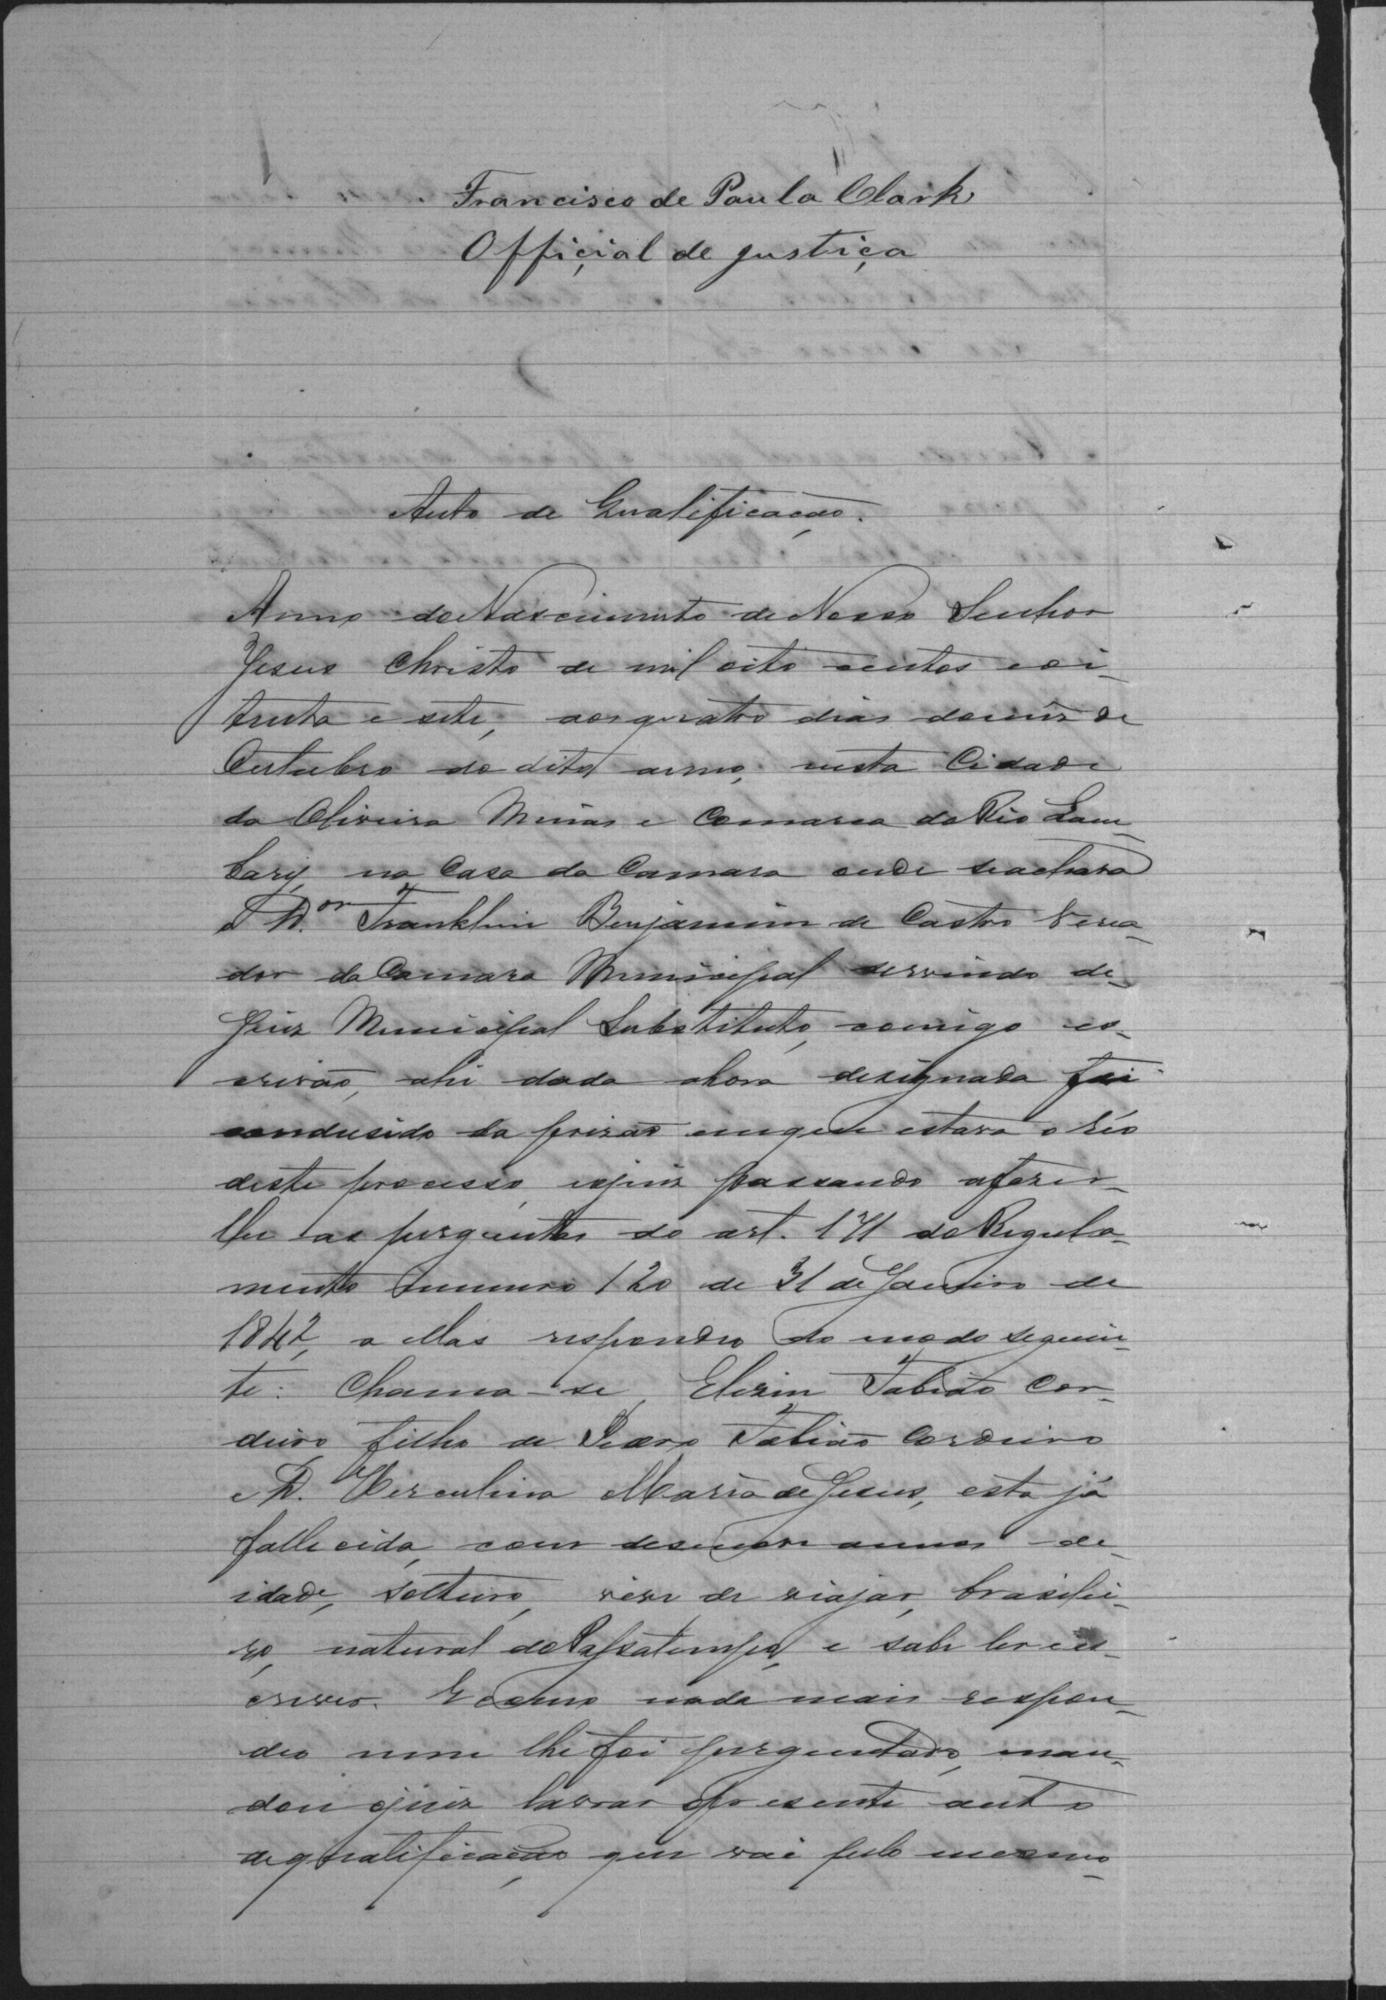 Francisco de Paula Clark
Official de justiça
Auto de Qualificação.
Anno do Nascimento de Nosso Senhor
Jesus Christo de mil oito centos e oi-
tenta e sete, aos quatro dias do mez de
Outubro do dito anno, nesta Cidade
da Oliveira Minas e Comarca do Rio Lam-
bary, na Casa da Camara onde se achava
o D.or Franklin Benjamim de Castro Verea-
dor da Camara Municipal servindo de
Juiz Municipal Substituto, comigo es-
crivão, ahi dada a hora designada foi
condusido da prizão em que estava o réo
deste processo, e o juiz passando a fazer-
lhe as perguntas do art. 171 do Regula-
mento numero 120 de 31 de Janeiro de
1842, a ellas respondeo do modo seguin-
te: Chama-se Fabião Cor-
deiro, filho de Pedro Fabião Cordeiro
e D. Herculina Maria de Jesus, esta já
fallecida, com desenove annos de
idade, solteiro, vive de viajar, brasilei-
ro, natural do Passatempo, e sabe ler e es-
crever. E como nada mais respon-
deo nem lhe foi perguntado, man-
dou o juiz lavrar o presente auto
de qualificação que vai pelo mesmo